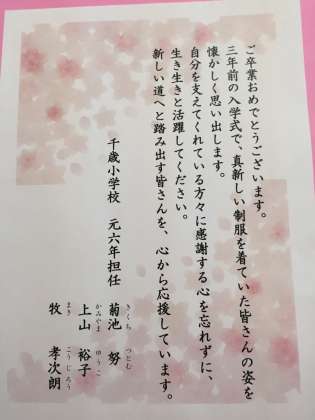 ご卒業おめでとうございます。
三年前の入学式で、真新しい制服を着ていた皆さんの姿を
懐かしく思い出します。
自分を支えてくれている方々に感謝する心を忘れずに、
生き生きと活躍してください。
新しい道へと踏み出す皆さんを、心から応援しています。
千歳小学校 元六年担任
菊池 努
きくち つとむ
上山 裕子
かみやま ゆうこ
牧 孝次朗
まき こうじろう